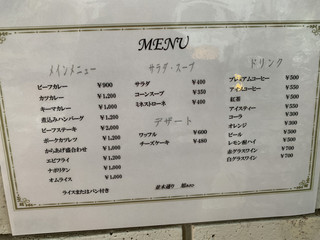 MENU
メインメニュー
ビーフカレー ¥900
カツカレー ¥1,200
キーマカレー ¥1,000
煮込みハンバーグ ¥1,200
ビーフステーキ ¥2,000
ポークカツレツ ¥1,200
からあげ盛合わせ ¥1,000
エビフライ ¥1,200
ナポリタン ¥1,000
オムライス ¥1,000
ライスまたはパン付き
サラダ・スープ
サラダ ¥400
コーンスープ ¥350
ミネストローネ ¥400
デザート
ワッフル ¥600
チーズケーキ ¥480
並木通り
ドリンク
プレミアムコーヒー ¥500
アイスコーヒー ¥550
紅茶 ¥500
アイスティー ¥550
コーラ ¥300
オレンジ ¥300
ビール ¥500
レモン酎ハイ ¥500
赤グラスワイン ¥700
白グラスワイン ¥700